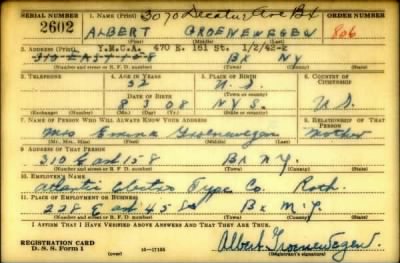 SERIAL NUMBER 1. NAME (Print) 3070 Decatur Ave Bx ORDER NUMBER
2602 ALBERT GROENEWEGEN 806
(First) (Middle) (Last)
2. ADDRESS (Print) Y.M.C.A. 470 E. 161 St. 1/2/42-2
310 EAST 158 BX NY
(Number and street or R. F. D. number) (Town) (County) (State)
3. TELEPHONE 4. AGE IN YEARS 5. PLACE OF BIRTH 6. COUNTRY OF CITIZENSHIP
32 N.Y.
DATE OF BIRTH (Town or county)
8 3 08 N.Y.S. U.S.
(Exchange) (No.) (Mo.) (Day) (Yr.) (State or country)
7. NAME OF PERSON WHO WILL ALWAYS KNOW YOUR ADDRESS 8. RELATIONSHIP OF THAT PERSON
Mrs Emma Groenewegen Mother
(Mr., Mrs., Miss) (First) (Middle) (Last)
9. ADDRESS OF THAT PERSON
310 East 158 Bx N.Y.
(Number and street or R. F. D. number) (Town) (County) (State)
10. EMPLOYER'S NAME
Atlantic Electro Type Co.
11. PLACE OF EMPLOYMENT OR BUSINESS
228 E 45 St N.Y.
(Number and street or R. F. D. number) (Town) (County) (State)
I AFFIRM THAT I HAVE VERIFIED ABOVE ANSWERS AND THAT THEY ARE TRUE.
REGISTRATION CARD
D. S. S. Form 1 (over) 16-17105 Albert Groenewegen
(Registrant's signature)